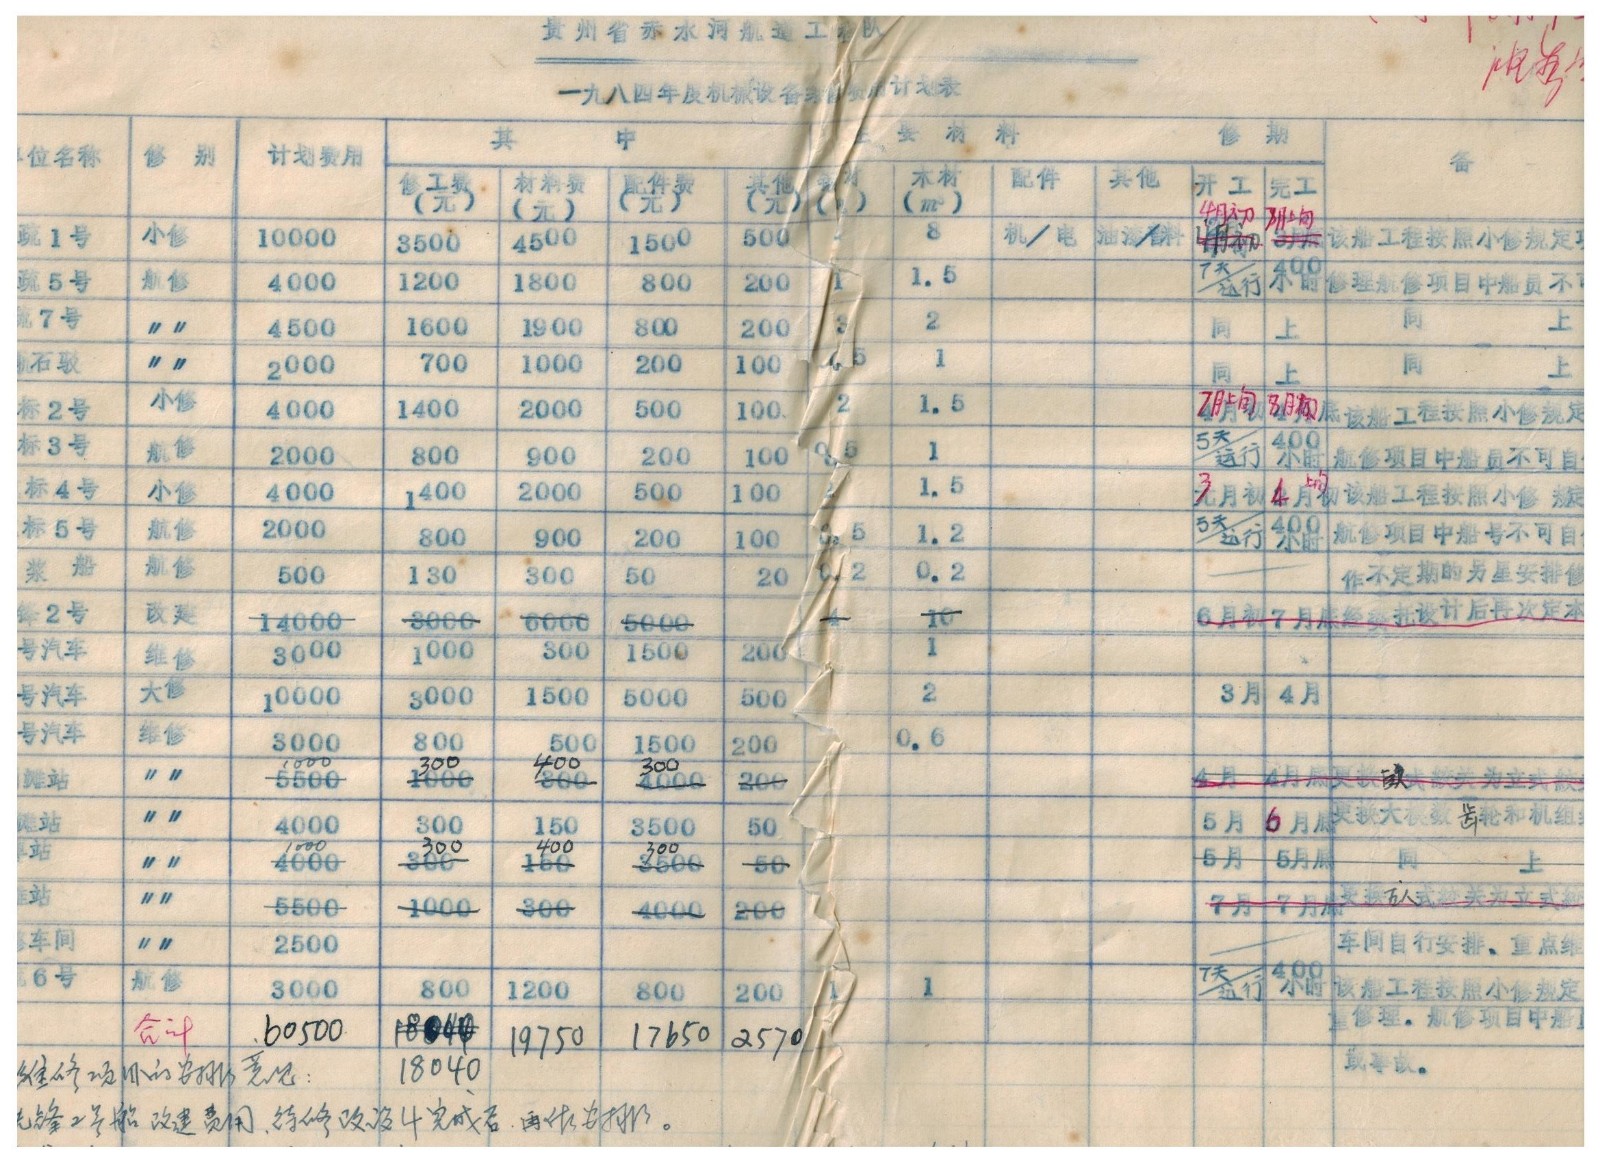 贵州省赤水河航道工程队
一九八四年度机械设备 费用计划表
位名称 修别 计划费用 其中 主要材料 修期 备
修工费(元) 材料费(元) 配件费(元) 其他(元) 木材(m³) 配件 其他 开工 完工
4月初
疏1号 小修 10000 3500 4500 1500 500 8 机/电 该船工程按照小修规定
疏5号 航修 4000 1200 1800 800 200 1 1.5 7天/运行 400小时 修理航修项目中船员不可
7号 〃〃 4500 1600 1900 800 200 3 2 同上 同上
石驳 〃〃 2000 700 1000 200 100 0.5 1 同上 同上
标2号 小修 4000 1400 2000 500 100 2 1.5 7月上旬 8月初 该船工程按照小修规定
标3号 航修 2000 800 900 200 100 0.5 1 5天/运行 400小时 航修项目中船员不可自
标4号 小修 4000 1400 2000 500 100 2 1.5 3月初 4月上旬 该船工程按照小修规定
标5号 航修 2000 800 900 200 100 0.5 1.2 5天/运行 400小时 航修项目中船号不可自
浆船 航修 500 130 300 50 20 0.2 0.2 作不定期的另星安排修
2号 改建 14000 3000 6000 5000 4 10 6月初 7月底 托设计后再次定
号汽车 维修 3000 1000 300 1500 200 1
号汽车 大修 10000 3000 1500 5000 500 2 3月 4月
号汽车 维修 3000 800 500 1500 200 0.6
1000 300 400 300
滩站 〃〃 5500 1000 300 4000 200 4月 4月底 为立式
站 〃〃 4000 300 150 3500 50 5月 6月底 更换大模数齿轮和机组
1000 300 400 300
站 〃〃 4000 300 150 3500 50 5月 5月底 同上
站 〃〃 5500 1000 300 4000 200 7月 7月底 更换 式绞关为立式
车间 〃〃 2500 车间自行安排、重点维
6号 航修 3000 800 1200 800 200 1 1 7天/运行 400小时 该船工程按照小修规定
重修理。航修项目中船
合计 60500 18040 19750 17650 2570
18040 或事故。
维修项目的安排意见:
先锋2号船改建费用,待修改设计完成后,再作安排。